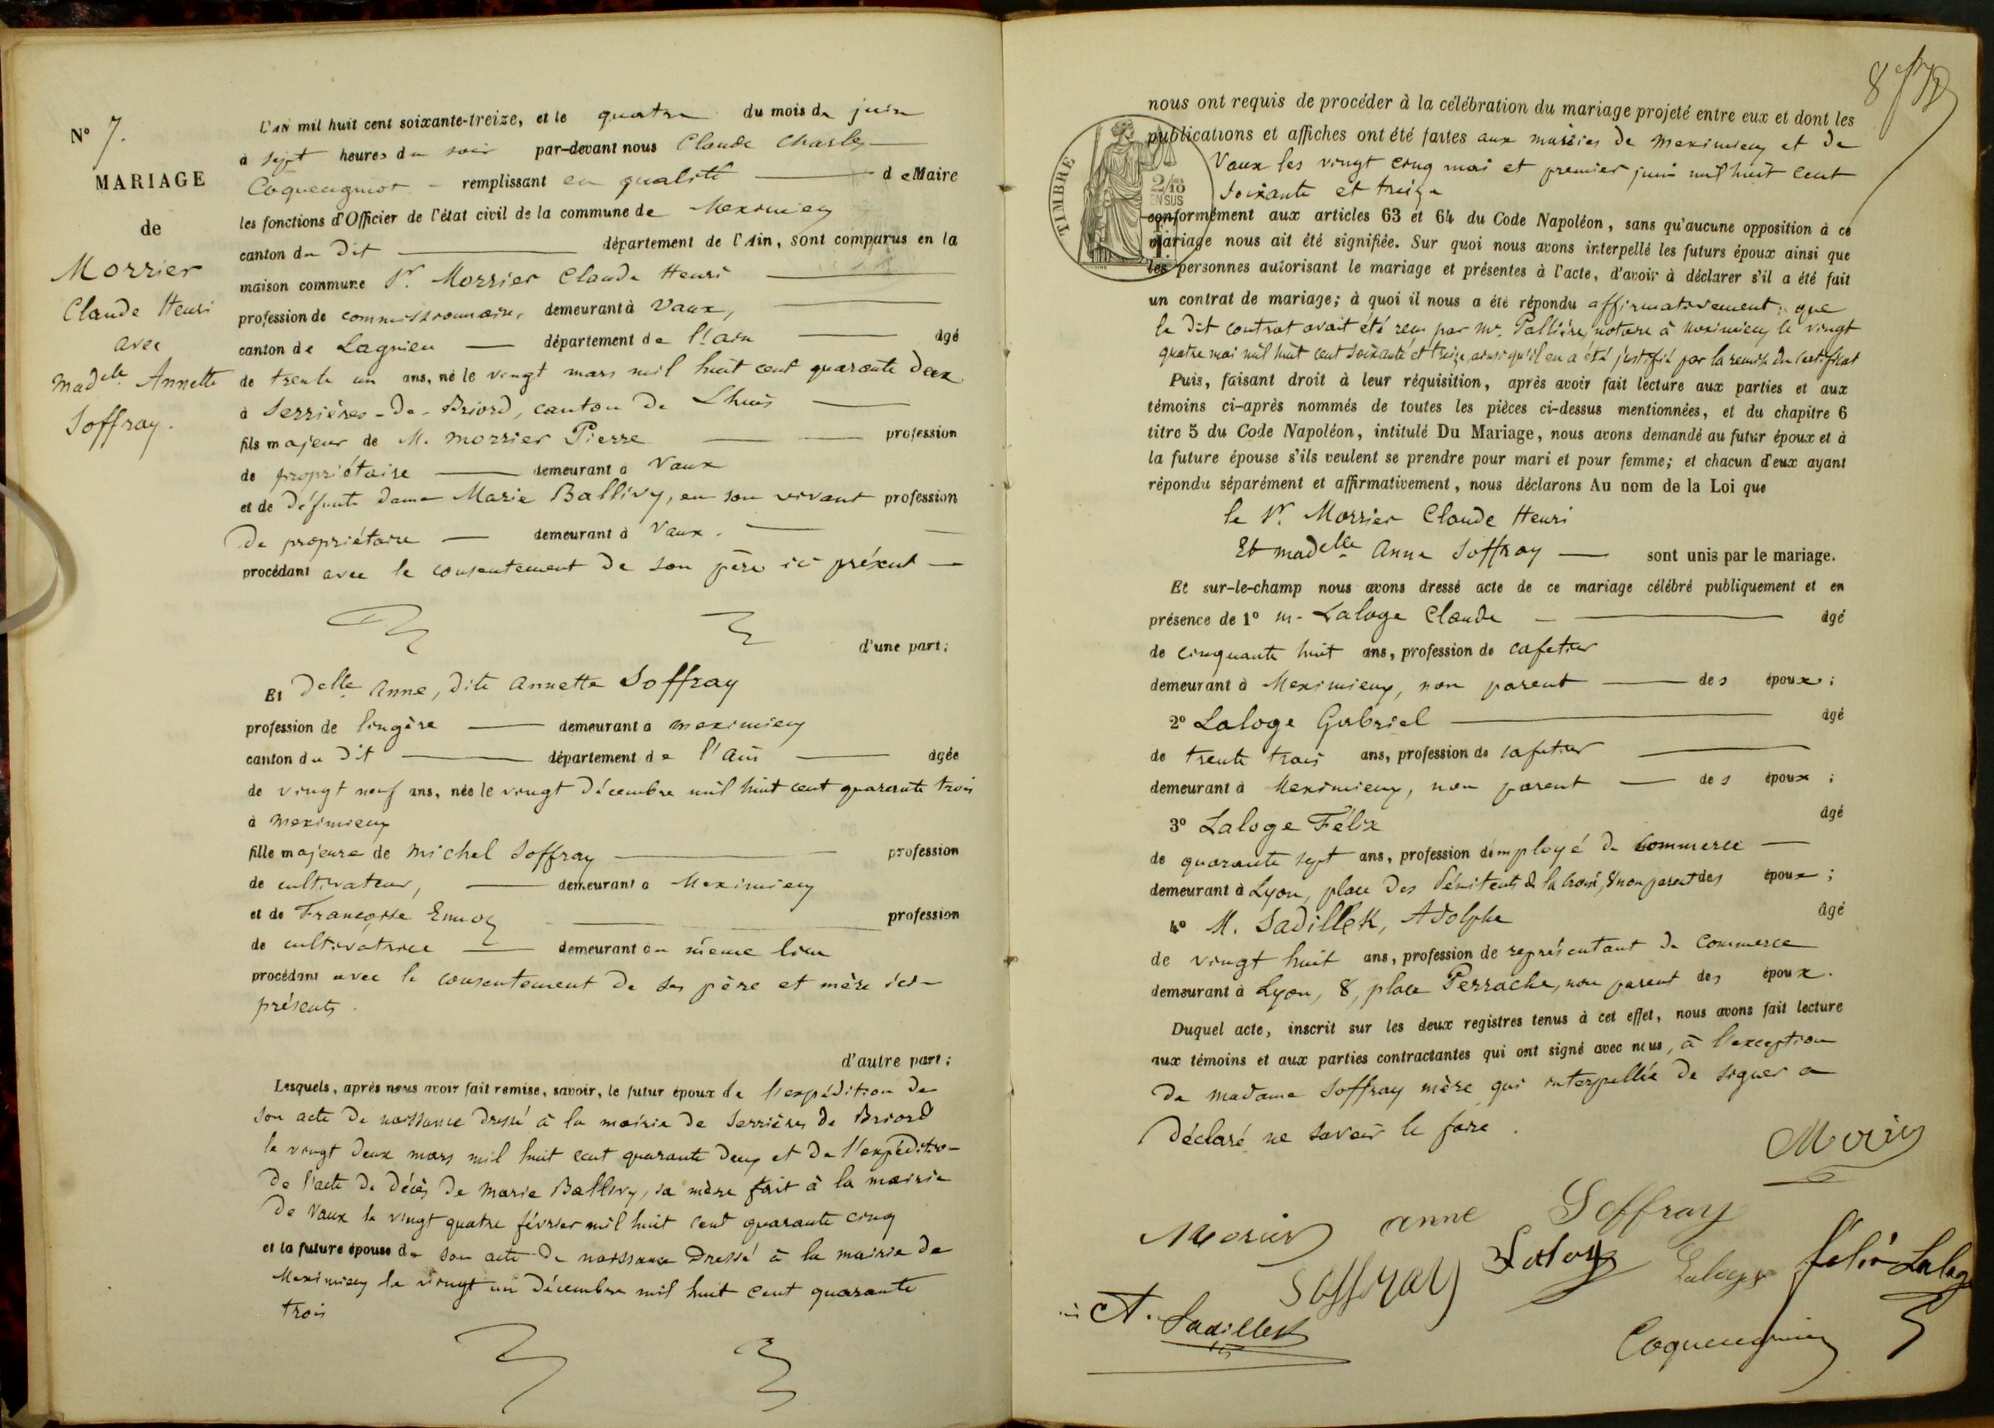 N° 7.
MARIAGE
de
Morrier
Claude Henri
avec
Mad.elle Annette
Soffray.
L'an mil huit cent soixante-treize, et le quatre du mois de juin
à sept heures du soir par-devant nous Claude Charles
remplissant en qualité de Maire
les fonctions d'Officier de l'état civil de la commune de Meximieux
canton du dit département de l'Ain, sont comparus en la
maison commune Sr. Morrier Claude Henri
profession de commissionnaire, demeurant à Vaux,
canton de Lagnieu département de l'ain âgé
de trente un ans, né le vingt mars mil huit cent quarante deux
à Serrières-de-Briord, canton de Lhuis
fils majeur de M. Morrier Pierre profession
de propriétaire demeurant à Vaux
et de défunte dame Marie Ballivy, en son vivant profession
de propriétaire demeurant à Vaux.
procédant avec le consentement de son père ici présent
d'une part;
Et Delle Anne, dite Annette Soffray
profession de lingère demeurant à Meximieux
canton du dit département de l'Ain âgée
de vingt neuf ans, née le vingt décembre mil huit cent quarante trois
à Meximieux
fille majeure de Michel Soffray profession
de cultivateur, demeurant à Meximieux
et de Françoise profession
de cultivatrice demeurant au même lieu
procédant avec le consentement de ses père et mère ici
présents.
d'autre part;
Lesquels, après nous avoir fait remise, savoir, le futur époux de l'expédition de
son acte de naissance dressé à la mairie de Serrières de Briord
le vingt deux mars mil huit cent quarante deux et de l'expédition
de l'acte de décès de Marie Ballivy, sa mère fait à la mairie
de Vaux le vingt quatre février mil huit cent quarante cinq
et la future épouse de son acte de naissance dressé à la mairie de
Meximieux le vingt un décembre mil huit cent quarante
trois
8
TIMBRE
2/10
EN SUS
nous ont requis de procéder à la célébration du mariage projeté entre eux et dont les
publications et affiches ont été faites aux mairies de Meximieux et de
Vaux les vingt cinq mai et premier juin mil huit cent
soixante et treize
conformément aux articles 63 et 64 du Code Napoléon, sans qu'aucune opposition à ce
mariage nous ait été signifiée. Sur quoi nous avons interpellé les futurs époux ainsi que
les personnes autorisant le mariage et présentes à l'acte, d'avoir à déclarer s'il a été fait
un contrat de mariage; à quoi il nous a été répondu affirmativement; que
le dit contrat avait été reçu par Me. Pallière, notaire à Meximieux le vingt
quatre mai mil huit cent soixante et treize, ainsi qu'il en a été justifié par la remise du certificat
Puis, faisant droit à leur réquisition, après avoir fait lecture aux parties et aux
témoins ci-après nommés de toutes les pièces ci-dessus mentionnées, et du chapitre 6
titre 5 du Code Napoléon, intitulé Du Mariage, nous avons demandé au futur époux et à
la future épouse s'ils veulent se prendre pour mari et pour femme; et chacun d'eux ayant
répondu séparément et affirmativement, nous déclarons Au nom de la Loi que
le Sr. Morrier Claude Henri
Et madelle Anne Soffray sont unis par le mariage.
Et sur-le-champ nous avons dressé acte de ce mariage célébré publiquement et en
présence de 1° M. Laloge Claude âgé
de cinquante huit ans, profession de cafetier
demeurant à Meximieux, non parent des époux;
2° Laloge Gabriel âgé
de trente trois ans, profession de cafetier
demeurant à Meximieux, non parent des époux;
3° Laloge Félix âgé
de quarante sept ans, profession d'employé de commerce
demeurant à Lyon, place des Pénitents de la Croix, 8 non parent des époux;
4° M. Sadillek, Adolphe âgé
de vingt huit ans, profession de représentant de commerce
demeurant à Lyon, 8, place Perrache, non parent des époux.
Duquel acte, inscrit sur les deux registres tenus à cet effet, nous avons fait lecture
aux témoins et aux parties contractantes qui ont signé avec nous, à l'exception
de madame Soffray mère qui interpellée de signer a
déclaré ne savoir le faire.
Morier
Morier anne Soffray
Soffray Laloge Laloge félix Laloge
A. Sadillek